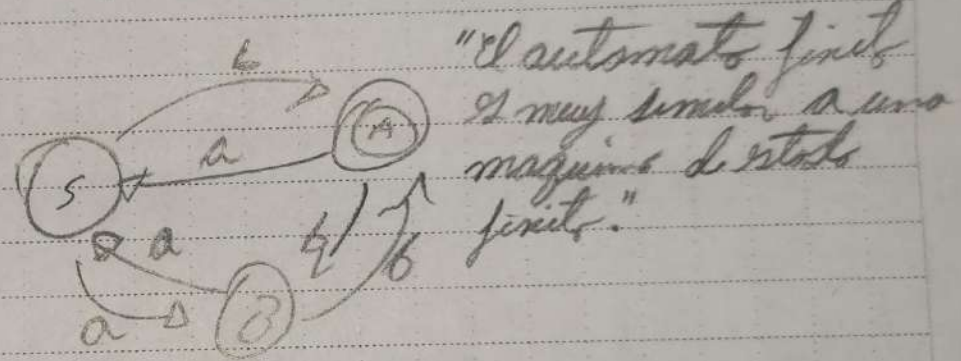 b
"El automato finito
A
es muy similar a una
a
maquina de estado
S
finito."
b
b
a
B
a